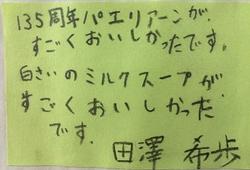 135周年パエリアーンが、
すごくおいしかったです。
白さいのミルクスープが
すごくおいしかった
です。
田澤 希歩